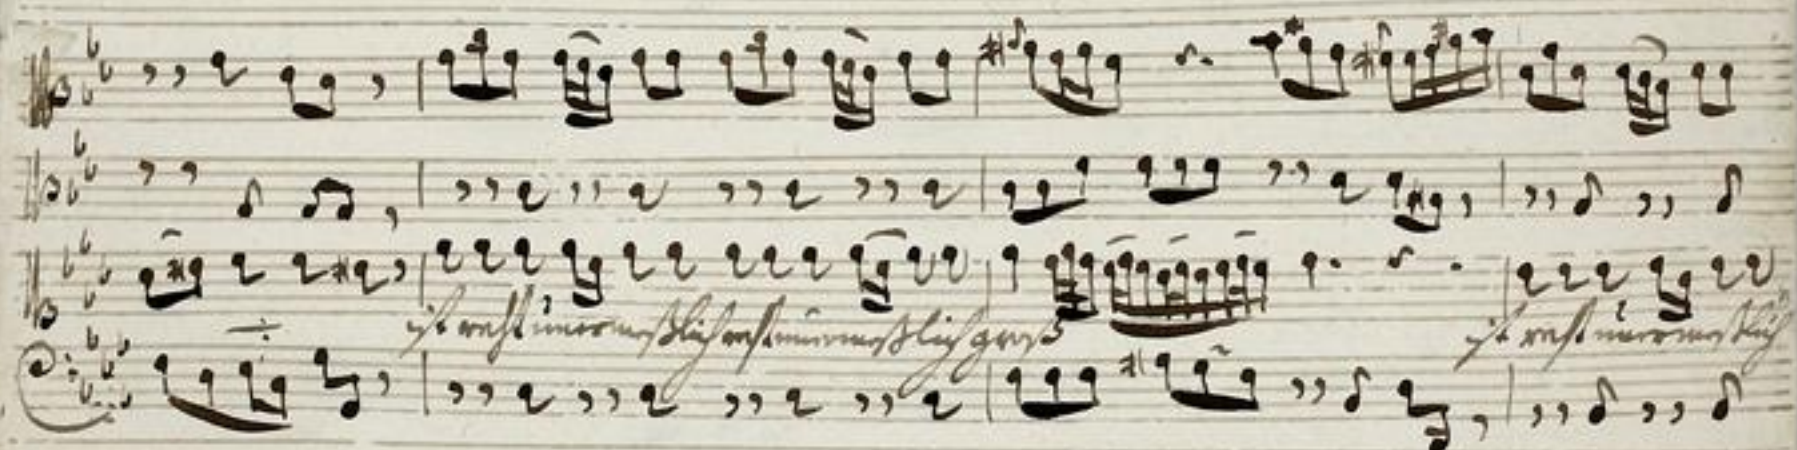 ist recht unermeßlich recht unermeßlich groß ist recht unermeßlich